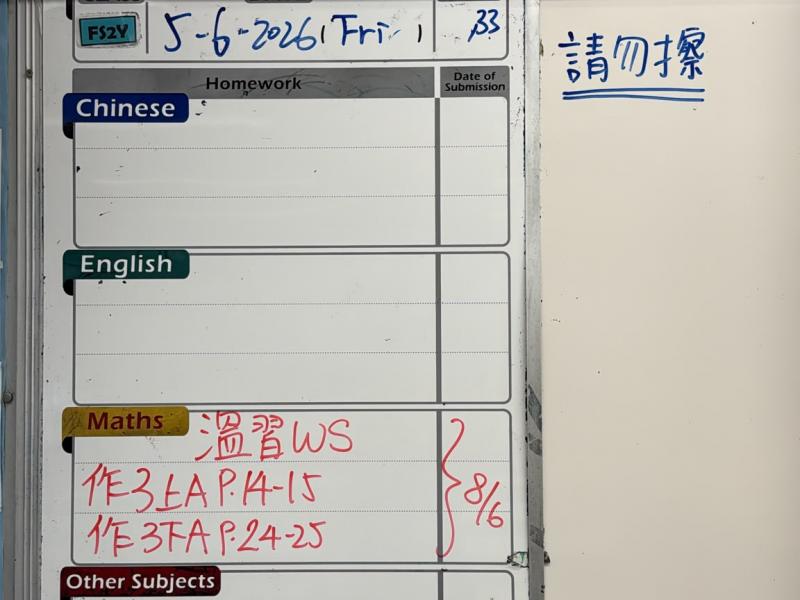 FS2Y 5-6-2026 (Fri) 33
請勿擦
Homework Date of Submission
Chinese
English
Maths 溫習WS
作3上A P.14-15 8/6
作3下A P.24-25
Other Subjects